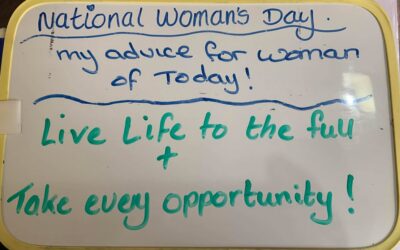 National Woman's Day.
my advice for woman
of Today!
Live Life to the full
+
Take every opportunity!